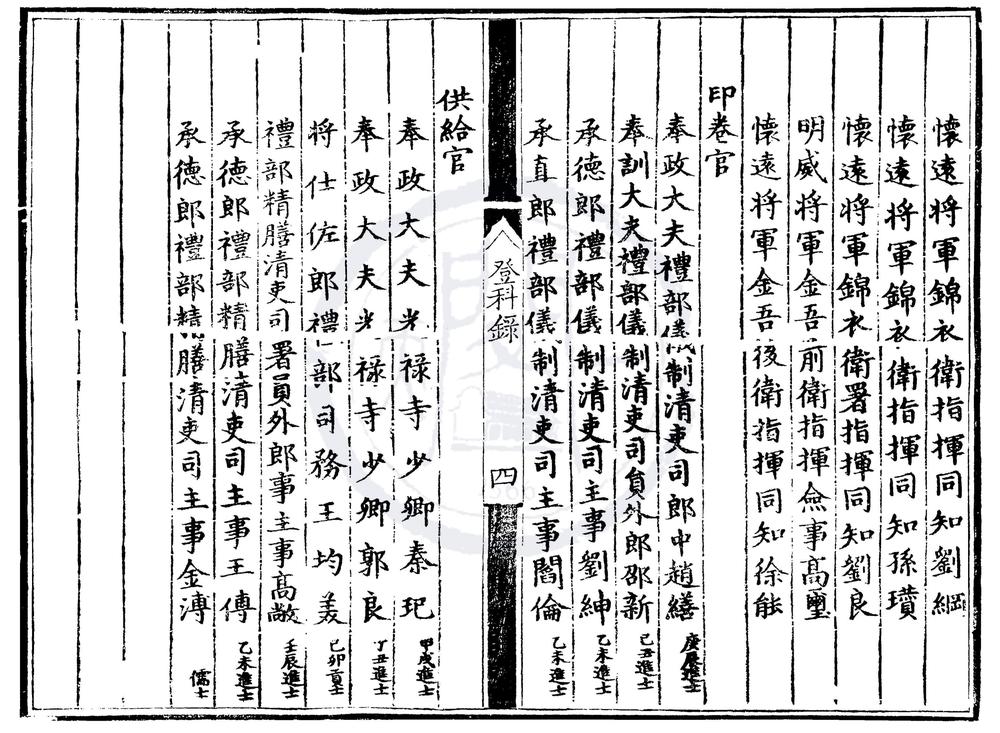 懷遠將軍錦衣衛指揮同知劉綱
懷遠將軍錦衣衛指揮同知孫瓚
懷遠將軍錦衣衛署指揮同知劉良
明威將軍金吾前衛指揮僉事高璽
懷遠將軍金吾後衛指揮同知徐能
印卷官
奉政大夫禮部儀制清吏司郎中趙繕 庚辰進士
奉訓大夫禮部儀制清吏司員外郎邵新 己丑進士
承德郎禮部儀制清吏司主事劉紳 乙未進士
承直郎禮部儀制清吏司主事閻倫 乙未進士
登科錄
四
供給官
奉政大夫光祿寺少卿秦玘 甲戌進士
奉政大夫光祿寺少卿郭良 丁丑進士
將仕佐郎禮部司務王均美 己卯貢士
禮部精膳清吏司署員外郎事主事高敞 壬辰進士
承德郎禮部精膳清吏司主事王傅 乙未進士
承德郎禮部精膳清吏司主事金溥 儒士